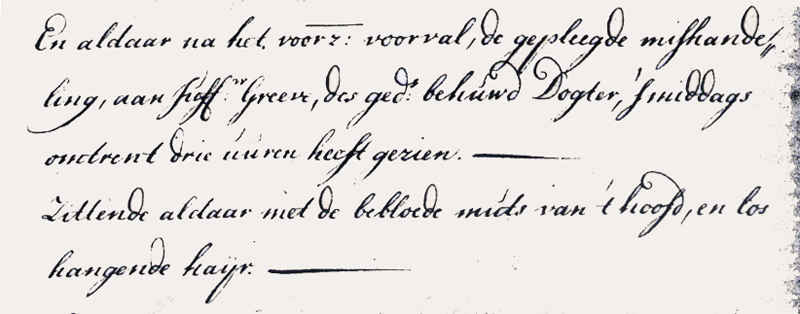 En aldaar na het voorz: voorval, de gepleegde mishande//
ling, aan Juff.r Greeve, des ged.s behuwd Dogter, 's middags
omtrent drie uuren heeft gezien. —
Zittende aldaar met de bebloede muts van 't hoofd, en los
hangende hayr. —